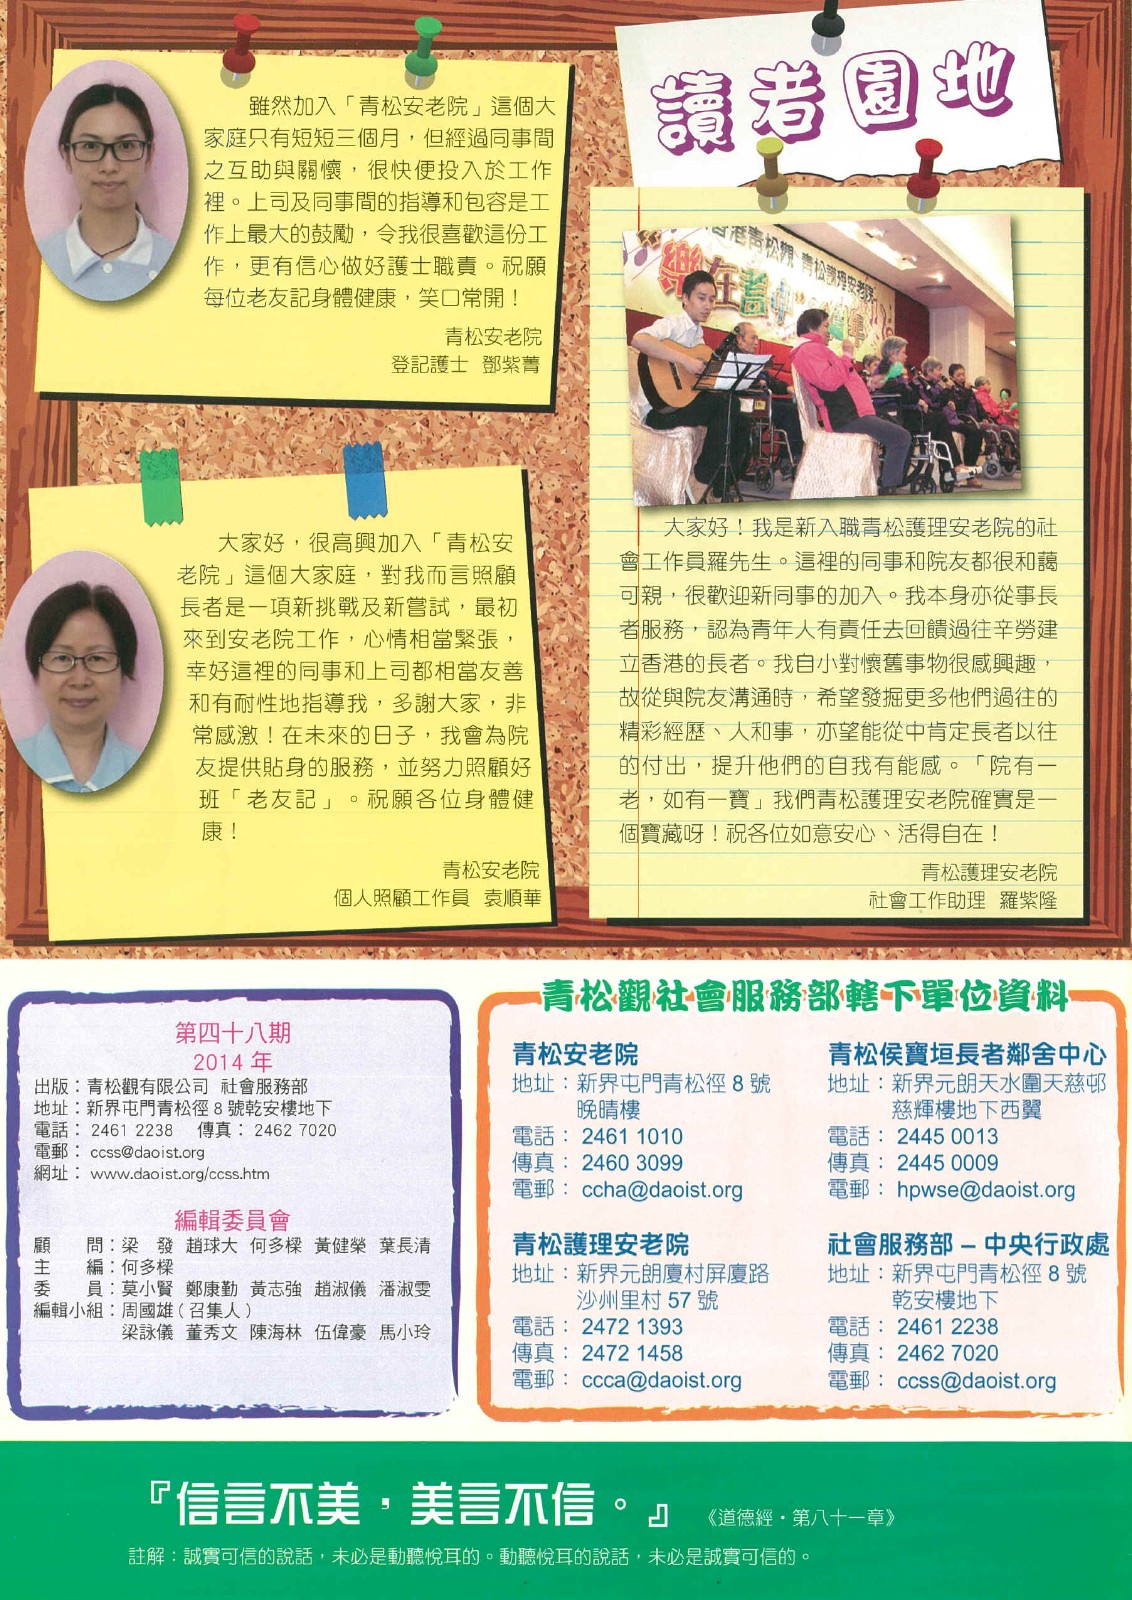 讀者園地
雖然加入「青松安老院」這個大
家庭只有短短三個月，但經過同事間
之互助與關懷，很快便投入於工作
裡。上司及同事間的指導和包容是工
作上最大的鼓勵，令我很喜歡這份工
作，更有信心做好護士職責。祝願
每位老友記身體健康，笑口常開！
青松安老院
登記護士 鄧紫菁
大家好，很高興加入「青松安
老院」這個大家庭，對我而言照顧
長者是一項新挑戰及新嘗試，最初
來到安老院工作，心情相當緊張，
幸好這裡的同事和上司都相當友善
和有耐性地指導我，多謝大家，非
常感激！在未來的日子，我會為院
友提供貼身的服務，並努力照顧好
班「老友記」。祝願各位身體健
康！
青松安老院
個人照顧工作員 袁順華
香港青松觀 青松護理安老院
樂在耆中
大家好！我是新入職青松護理安老院的社
會工作員羅先生。這裡的同事和院友都很和藹
可親，很歡迎新同事的加入。我本身亦從事長
者服務，認為青年人有責任去回饋過往辛勞建
立香港的長者。我自小對懷舊事物很感興趣，
故從與院友溝通時，希望發掘更多他們過往的
精彩經歷、人和事，亦望能從中肯定長者以往
的付出，提升他們的自我有能感。「院有一
老，如有一寶」我們青松護理安老院確實是一
個寶藏呀！祝各位如意安心、活得自在！
青松護理安老院
社會工作助理 羅紫隆
第四十八期
2014 年
出版：青松觀有限公司 社會服務部
地址：新界屯門青松徑 8 號乾安樓地下
電話： 2461 2238 傳真： 2462 7020
電郵： ccss@daoist.org
網址： www.daoist.org/ccss.htm
編輯委員會
顧　　問：梁　發 趙球大 何多樑 黃健榮 葉長清
主　　編：何多樑
委　　員：莫小賢 鄭康勤 黃志強 趙淑儀 潘淑雯
編輯小組：周國雄（召集人）
梁詠儀 董秀文 陳海林 伍偉豪 馬小玲
青松觀社會服務部轄下單位資料
青松安老院
地址：新界屯門青松徑 8 號
晚晴樓
電話： 2461 1010
傳真： 2460 3099
電郵： ccha@daoist.org
青松侯寶垣長者鄰舍中心
地址：新界元朗天水圍天慈邨
慈輝樓地下西翼
電話： 2445 0013
傳真： 2445 0009
電郵： hpwse@daoist.org
青松護理安老院
地址：新界元朗廈村屏廈路
沙州里村 57 號
電話： 2472 1393
傳真： 2472 1458
電郵： ccca@daoist.org
社會服務部 – 中央行政處
地址：新界屯門青松徑 8 號
乾安樓地下
電話： 2461 2238
傳真： 2462 7020
電郵： ccss@daoist.org
『信言不美，美言不信。』 《道德經・第八十一章》
註解：誠實可信的說話，未必是動聽悅耳的。動聽悅耳的說話，未必是誠實可信的。